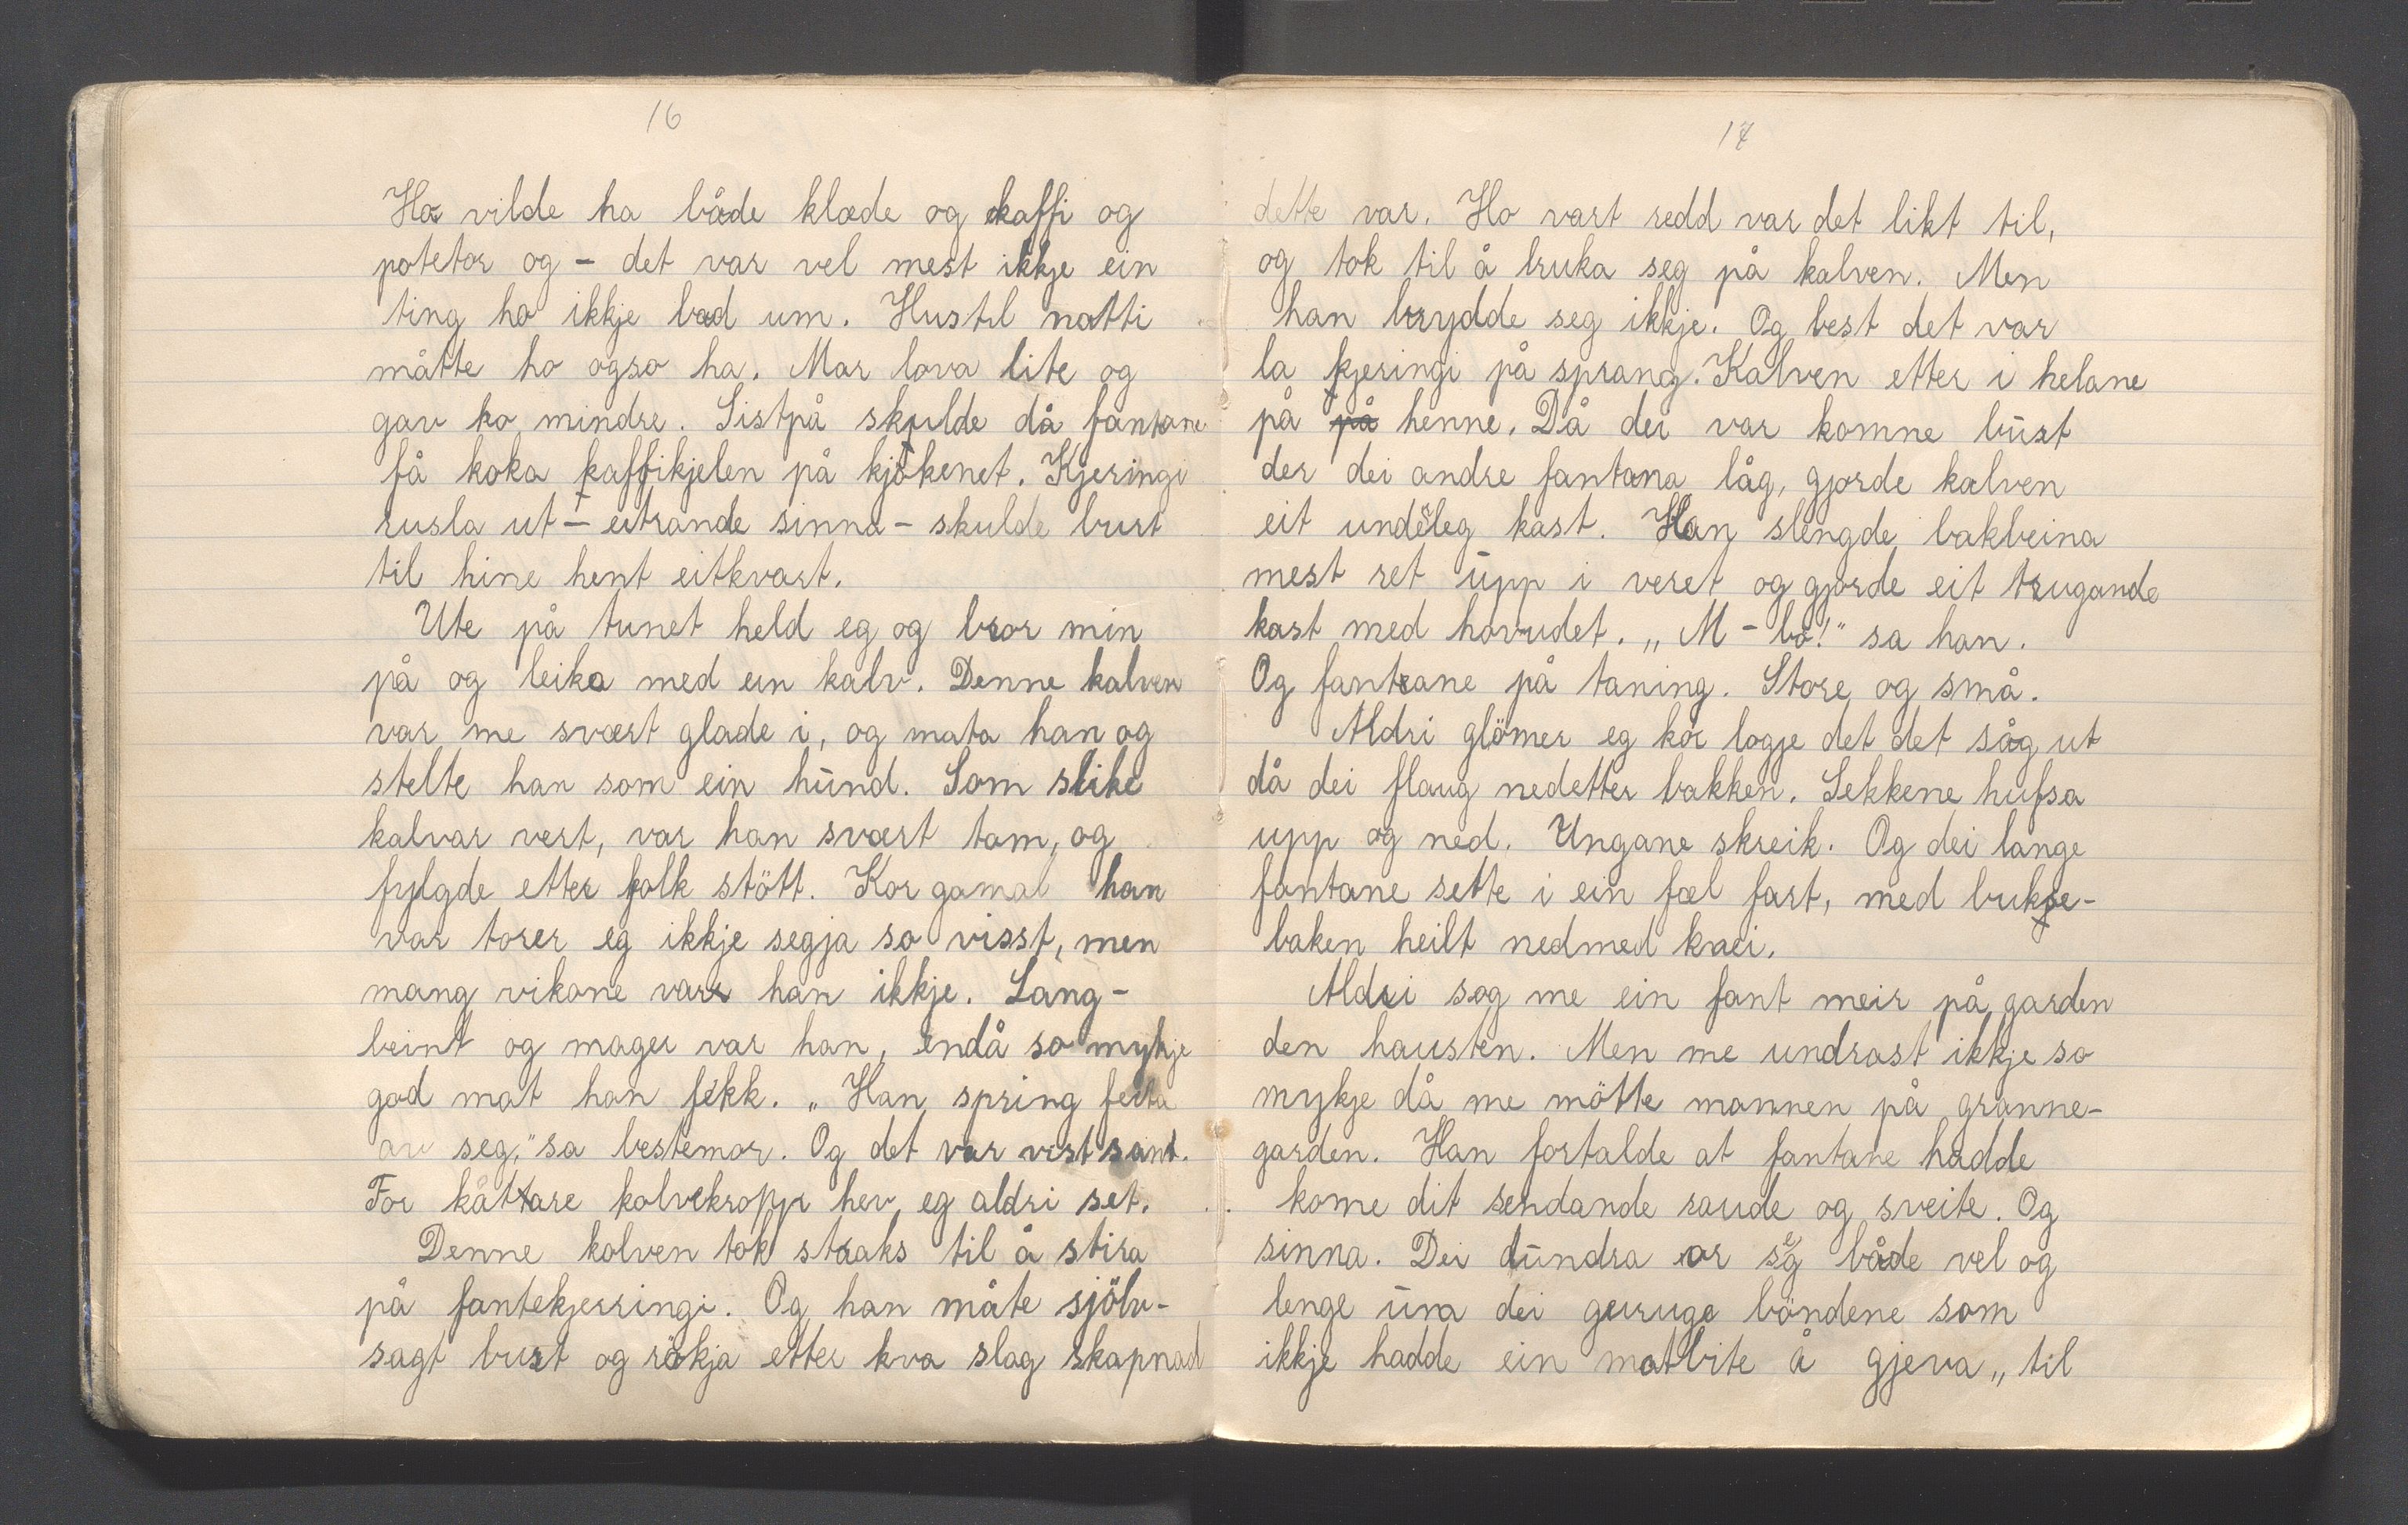 16
Ho vilde ha både klæde og kaffi og
potetor og – det var vel mest ikkje ein
ting ho ikkje bad um. Hustil natti
måtte ho ogso ha. Mor lova lite og
gav ho mindre. Sistpå skulde då fantane
få koka kaffikjelen på kjökenet. Kjeringi
rusla ut – eitrande sinna – skulde burt
til hine hent eitkvart.
Ute på tunet held eg og bror min
på og leika med ein kalv. Denne kalven
var me svært glade i, og mata han og
stelte han som ein hūnd. Som slike
kalvar vert, var han svært tam, og
fylgde etter folk stött. Kor gamal han
var torer eg ikkje segja so visst, men
mang vikone var han ikkje. Lang-
beint og mager var han, endå so mykje
god mat han fekk. „Han spring feita
av seg,” sa bestemor. Og det var vist sant.
For kåttare kalvekropp hev eg aldri set.
Denne kalven tok straks til å stira
på fantekjerringi. Og han måte sjölv-
sagt burt og rökja etter kva slag skapnad
17
dette var. Ho vart redd var det likt til,
og tok til å bruka seg på kalven. Men
han brydde seg ikkje. Og best det var
la kjeringi på sprang. Kalven etter i helane
på på henne. Då dei var komne būrt
der dei andre fantana låg, gjorde kalven
eit undeleg kast. Han slengde bakbeina
mest ret ūpp i veret og gjorde eit trugande
kast med hovudet. „M – bö!” sa han.
Og fantane på taning. Store og små.
Aldri glömer eg kor logje det det såg ut
då dei flaug nedetter bakken. Sekkene hufsa
upp og ned. Ungane skreik. Og dei lange
fantane sette i ein fæl fart, med bukse-
baken heilt nedmed knei.
Aldri sog me ein fant meir på garden
den hausten. Men me undrast ikkje so
mykje då me mötte mannen på granne-
garden. Han fortalde at fantane hadde
kome dit sendande raude og sveite. Og
sinna. Dei dūndra or seg både vel og
lenge ūm dei gjeruge böndene som
ikkje hadde ein matbite å gjeva „til